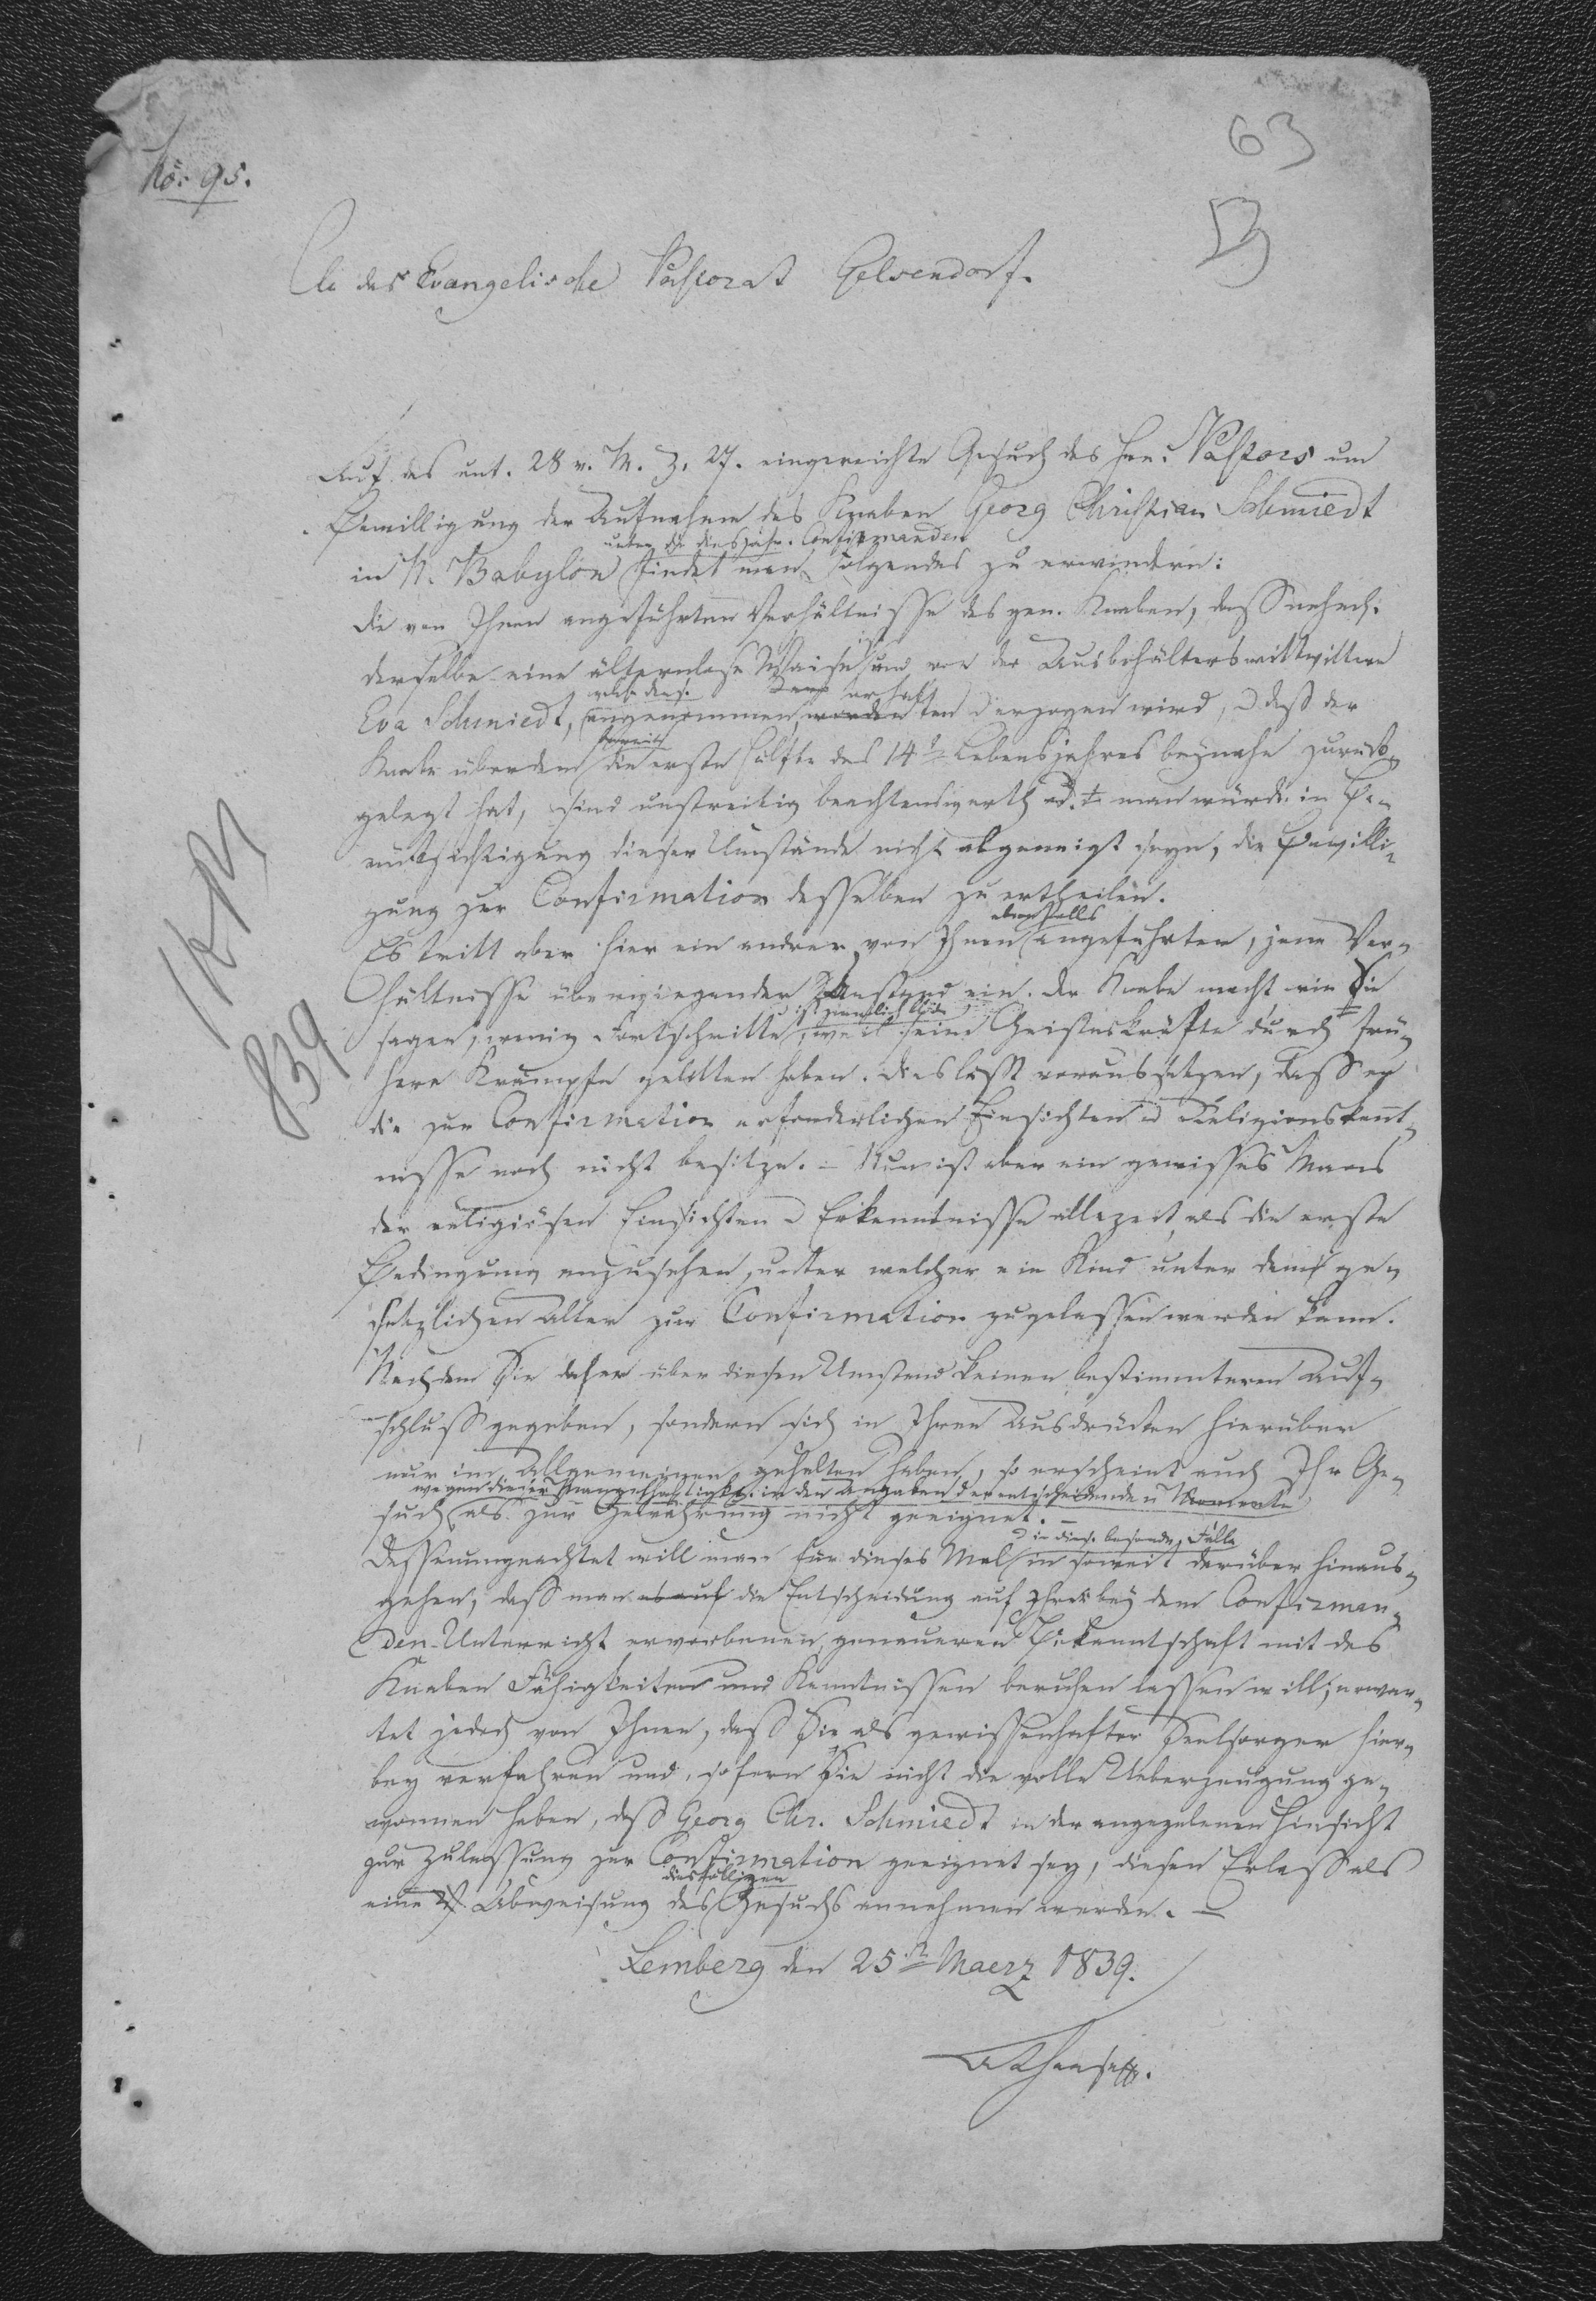 No: 95.
63
An das Evangelische Pastorat Gelsendorf.
Auf das unt. 28 v. M. Z. 27. eingereichte Gesuch des Hrn. Pastors um
Bewilligung der Aufnahme des Knaben Georg Christian Schmiedt
unter die diesjähr. Confirmanden
in N. Babylon findet man folgendes zu erwiedern:
Die von Ihnen angeführten Verhältnisse des gen. Knaben, dass nehml.
derselbe eine älternlose Waise ist und von der Ausbehälterswittwe
Eva Schmiedt, angenommen, worden erhalten u erzogen wird, u daß der
bereits
Knabe überdem die erste Hälfte des 14t Lebensjahres beynahe zurück-
gelegt hat, sind unstreitig beachtenswerth u. man würde in Be-
rücksichtigung dieser Umstände nicht abgeneigt seyn, die Bewilli-
gung zur Confirmation desselben zu ertheilen.
ebenfalls
Es tritt aber hier ein andrer von Ihnen angeführter, jene Ver-
hältnisse überwiegender Umstand ein. Der Knabe macht wie Sie
u ist ziemlich blöde
sagen, wenig Fortschritte, weil seine Geisteskräfte durch frü-
here Krämpfe gelitten haben. Dies lässt voraussetzen, dass er
die zur Confirmation erforderlichen Einsichten u Religionskennt-
nisse noch nicht besitze. - Nun ist aber ein gewisses Maas
der religiösen Einsichten u Erkenntnisse allezeit als die erste
Bedingung anzusehen, unter welcher ein Kind unter dem ge-
setzlichen Alter zur Confirmation zugelassen werden kann.
Nachdem Sie daher über diesen Umstand keinen bestimmteren Auf-
schluss gegeben, sondern sich in Ihren Ausdrücken hierüber
nur im Allgemeinen gehalten haben, so erscheint auch Ihr Ge-
wegen dieser Mangelhaftigkt. in den Angaben der entscheidenden Momente
such als zur Gewährung nicht geeignet. -
u in diese. besonde. Falle
Dessenungeachtet will man für dieses Mal in soweit darüber hinaus-
gehen, dass man es auf die Entscheidung auf Ihrer bey dem Confirman-
den-Unterricht erworbenen genaueren Bekanntschaft mit des
Knaben Fähigkeiten und Kenntnissen beruhen lassen will; erwar-
tet jedoch von Ihnen, daß Sie als gewissenhafter Seelsorger hier-
bey verfahren und, sofern Sie nicht die volle Ueberzeugung ge-
wonnen haben, daß Georg Chr. Schmiedt in der angegebenen Hinsicht
zur Zulassung zur Confirmation geeignet sey, diesen Erlass als
diesfälligen
eine Abweisung des Gesuchs annehmen werden. -
Lemberg den 25n Maerz 1839.
839